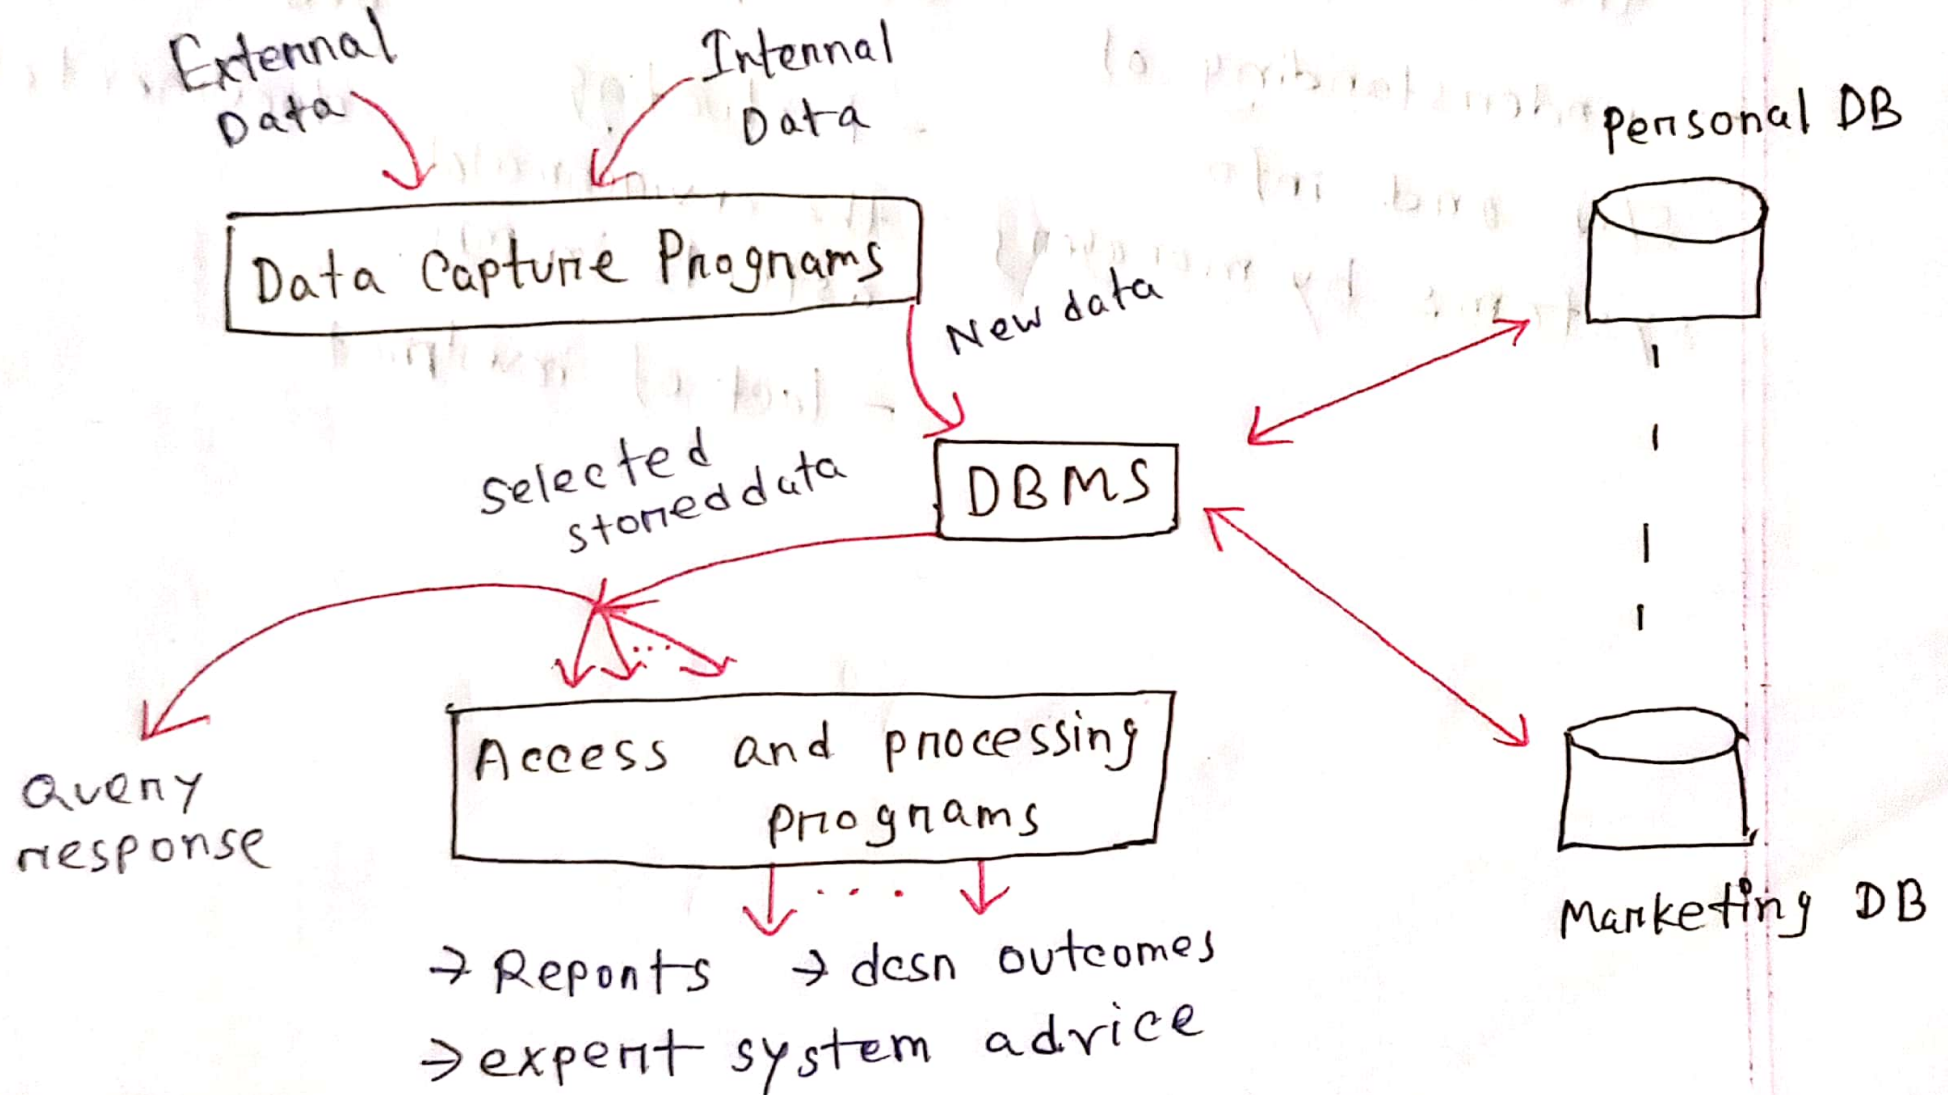 External
Data
Internal
Data
Personal DB
Data Capture Programs
New data
Selected
stored data
DBMS
Query
response
Access and processing
programs
Marketing DB
→ Reports → dcsn outcomes
→ expert system advice